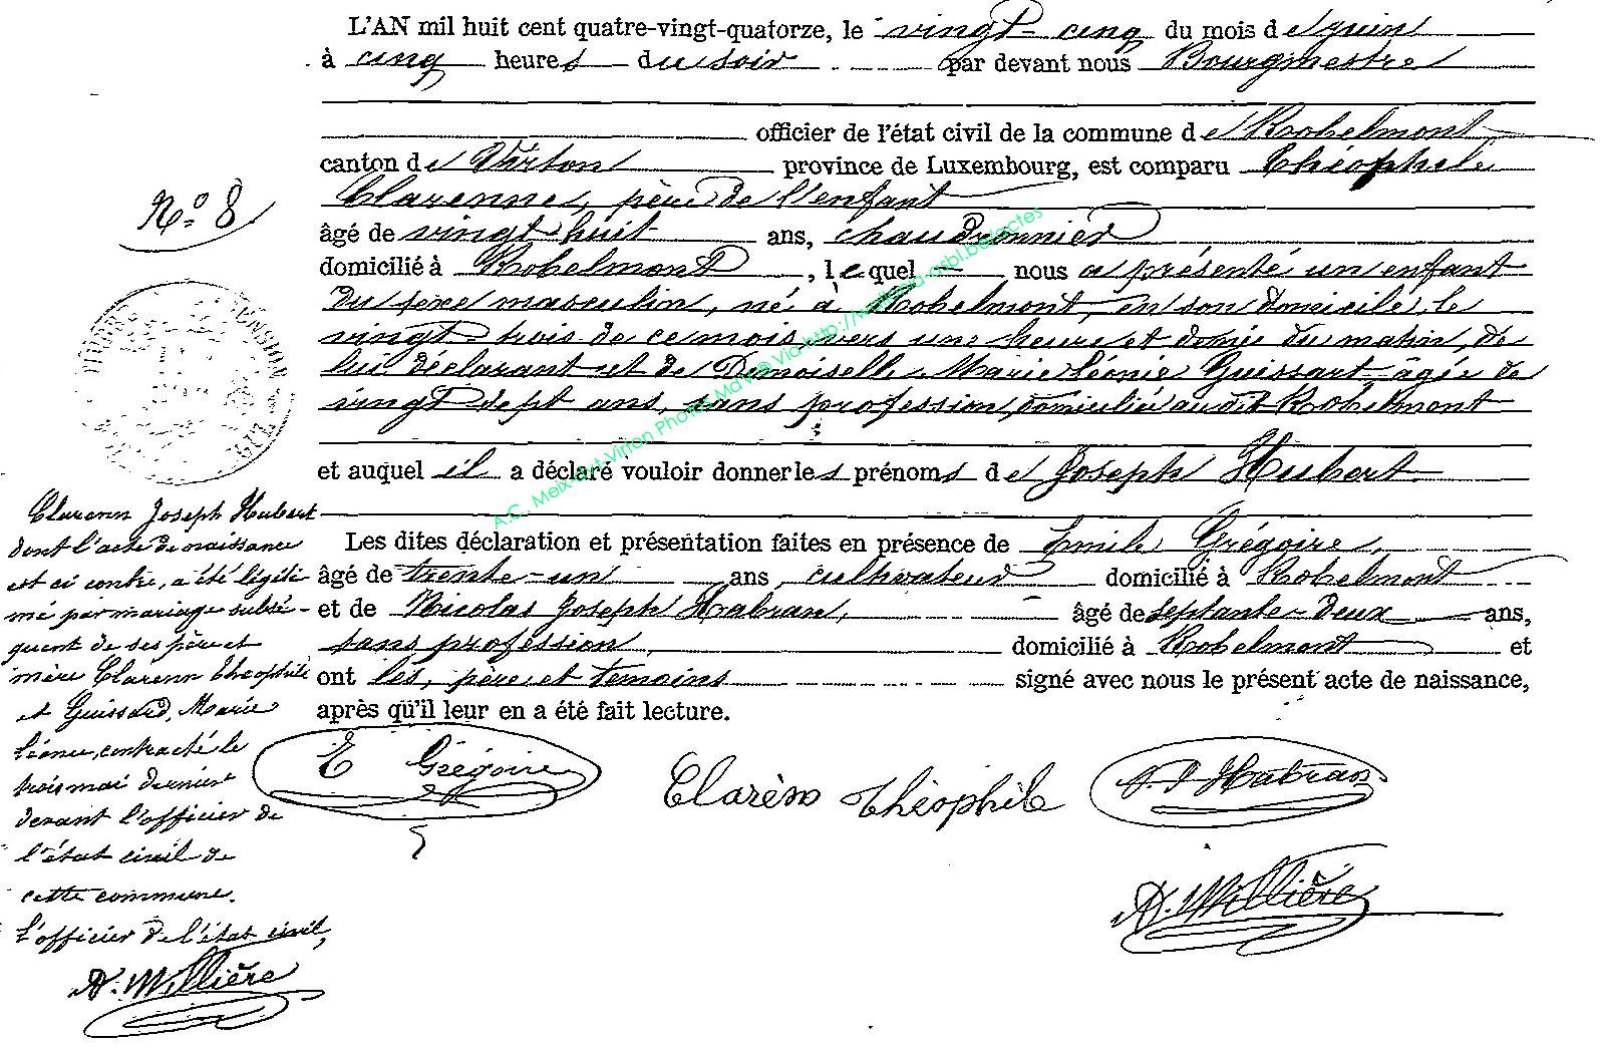 L'AN mil huit cent quatre-vingt-quatorze, le vingt-cinq du mois de juin
à cinq heures du soir par devant nous Bourgmestre
officier de l'état civil de la commune de Robelmont
canton de Virton province de Luxembourg, est comparu Théophile
Clarenne, père de l'enfant
âgé de vingt huit ans, chaudronnier
domicilié à Robelmont, lequel nous a présenté un enfant
du sexe masculin, né à Robelmont, en son domicile, le
vingt trois de ce mois vers une heure et demie du matin, de
lui déclarant et de Demoiselle Marie Léonie Guissart âgée de
vingt sept ans, sans profession, domiciliée au dit Robelmont
et auquel il a déclaré vouloir donner les prénoms de Joseph Hubert
Les dites déclaration et présentation faites en présence de Emile Grégoire,
âgé de trente-un ans, cultivateur domicilié à Robelmont
et de Nicolas Joseph Habran, âgé de septante-deux ans,
sans profession, domicilié à Robelmont et
ont les, père et temoins signé avec nous le présent acte de naissance,
après qu'il leur en a été fait lecture.
E Grégoire Clarèns Théophile N. J Habran
A. Millière
No 8
Clarenn Joseph Hubert
dont l'acte de naissance
est ci contre, a été légiti
mé par mariage subsé-
quent de ses père et
mère Clarenn Théophile
et Guissard, Marie
Léonie, contracté le
trois mai dernier
devant l'officier de
l'état civil de
cette commune.
L'officier de l'état civil,
A. Millière
A.C. Meix-dvt-Virton Photos MdW@ Via http://